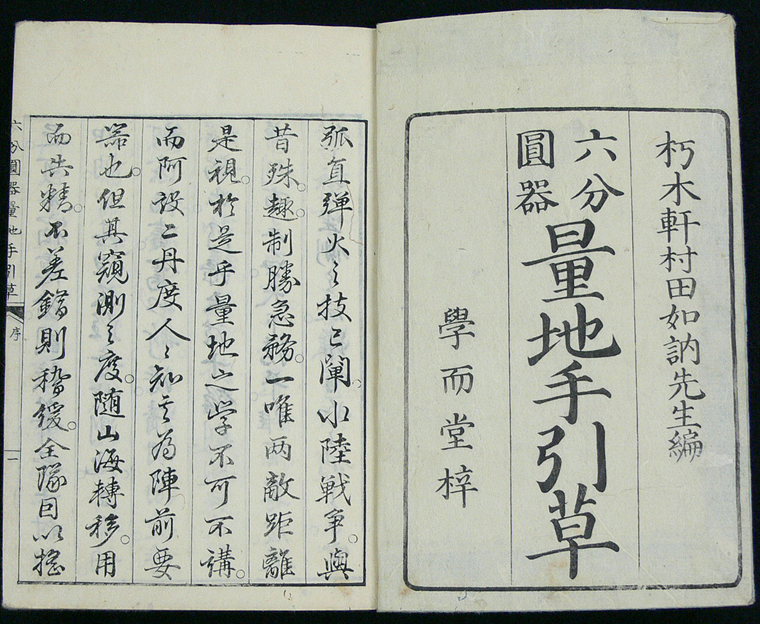 朽木軒村田如訥先生編
六分
圓器
量地手引草
學而堂梓
弧直彈火之技已闡。水陸戦争。與
昔殊。趣。制勝急務。一唯两敵距離
是視。於是乎量地之学不可不講。
而阿設二丹度人々知其為陣前要
器也。但其窺測之度。随山海轉移。用
而失精。不差錯則稽緩。全隊因以搖
六分圓器量地手引草
序
一